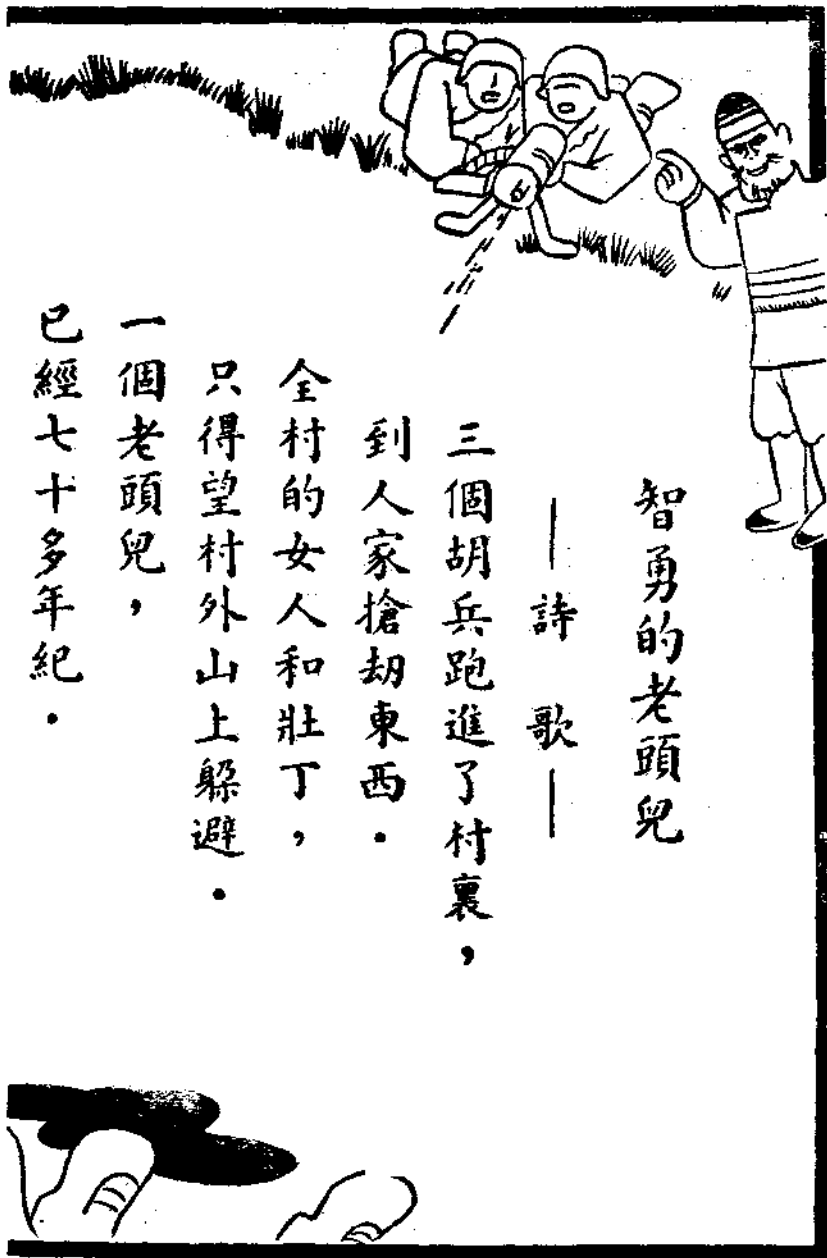 智勇的老頭兒
——詩歌——
三個胡兵跑進了村裏，
到人家搶刧東西．
全村的女人和壯丁，
只得望村外山上躲避．
一個老頭兒，
已經七十多年紀．